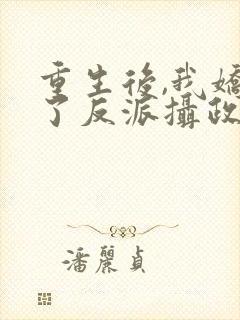 重生後,我
了反派攝政
潘麗貞